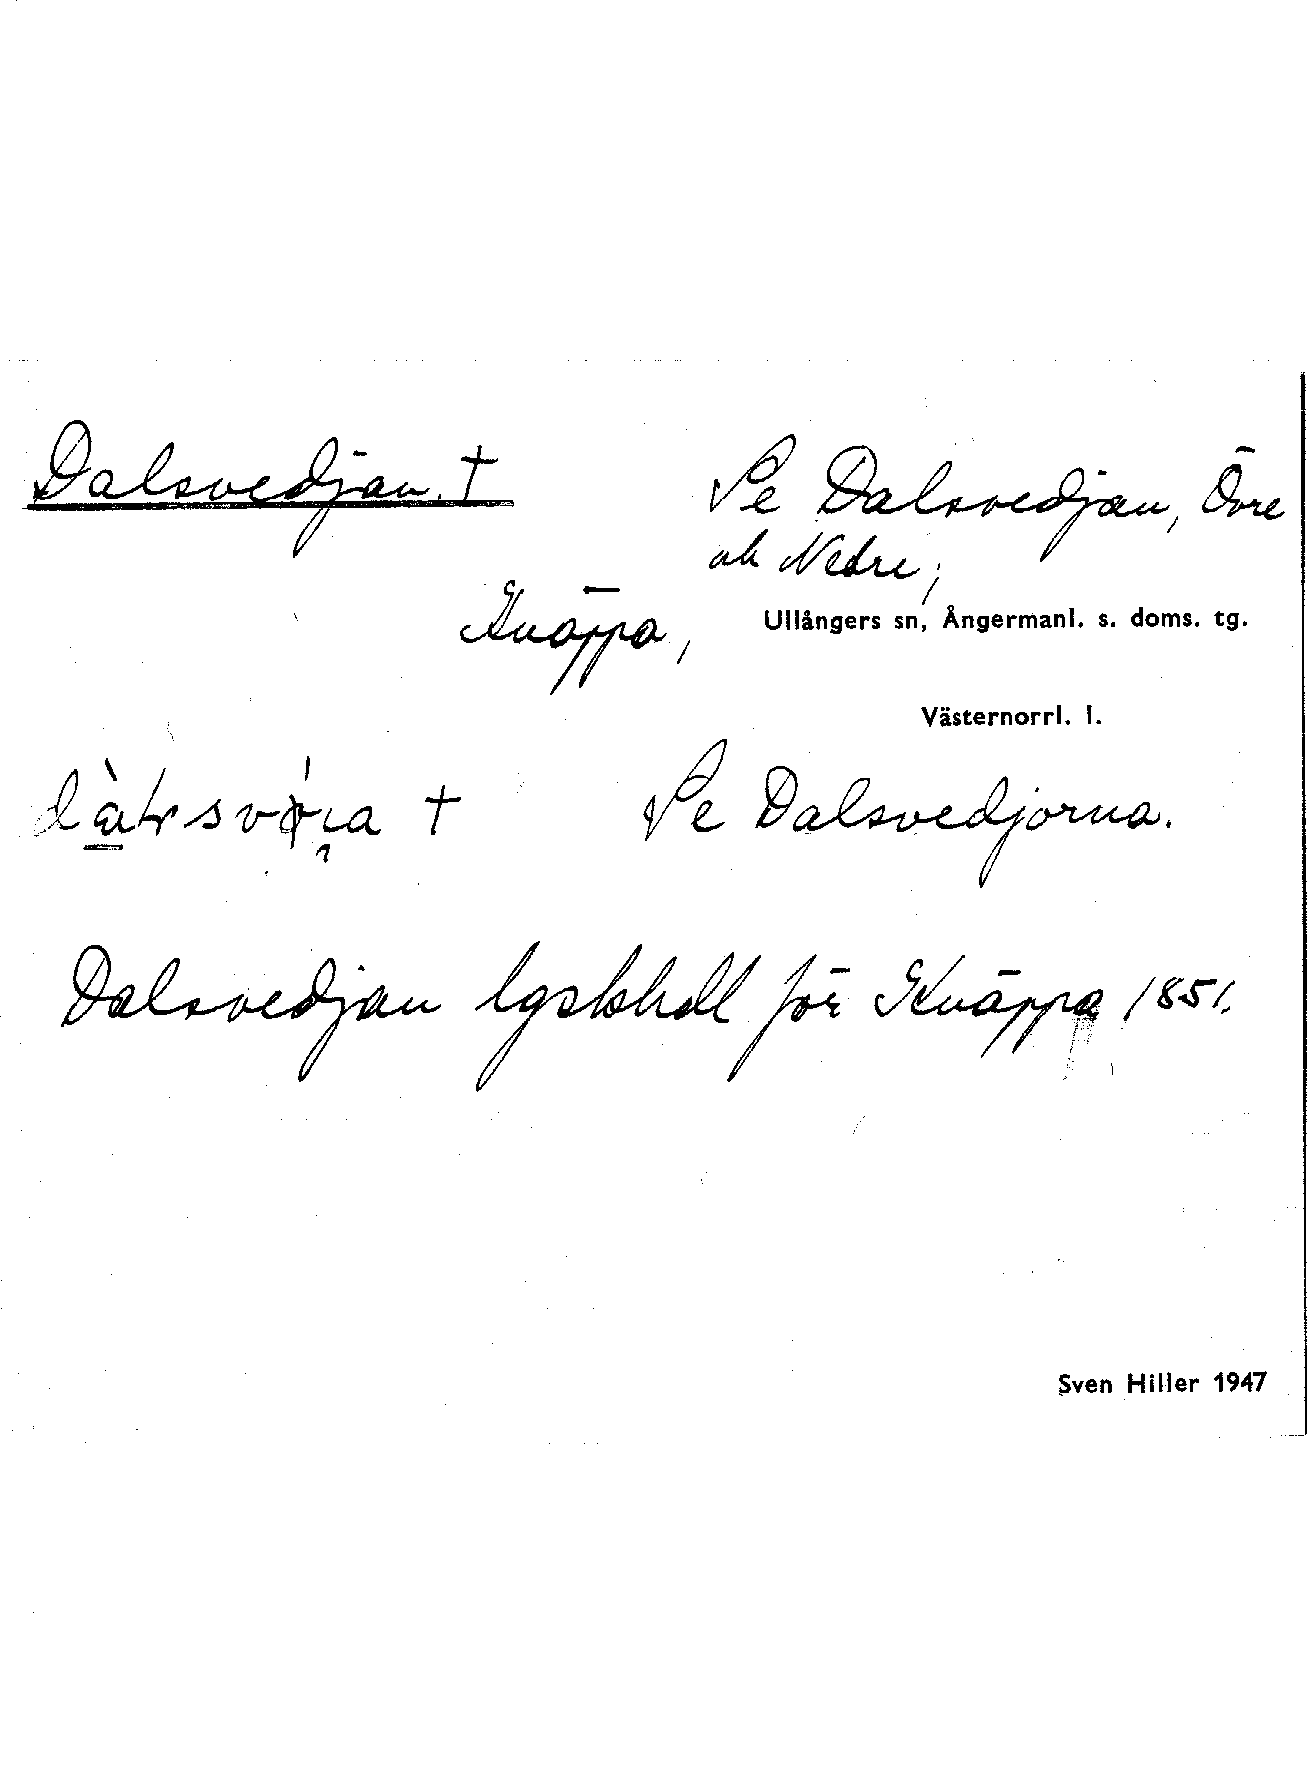 Dalsvedjan. † Se Dalsvedjan, Övre
och Nedre;
Knäppa, Ullångers sn, Ångermanl. s. doms. tg.
Västernorrl. l.
† Se Dalsvedjorna.
Dalsvedjan lgskholl för Knäppa 1851.
Sven Hiller 1947